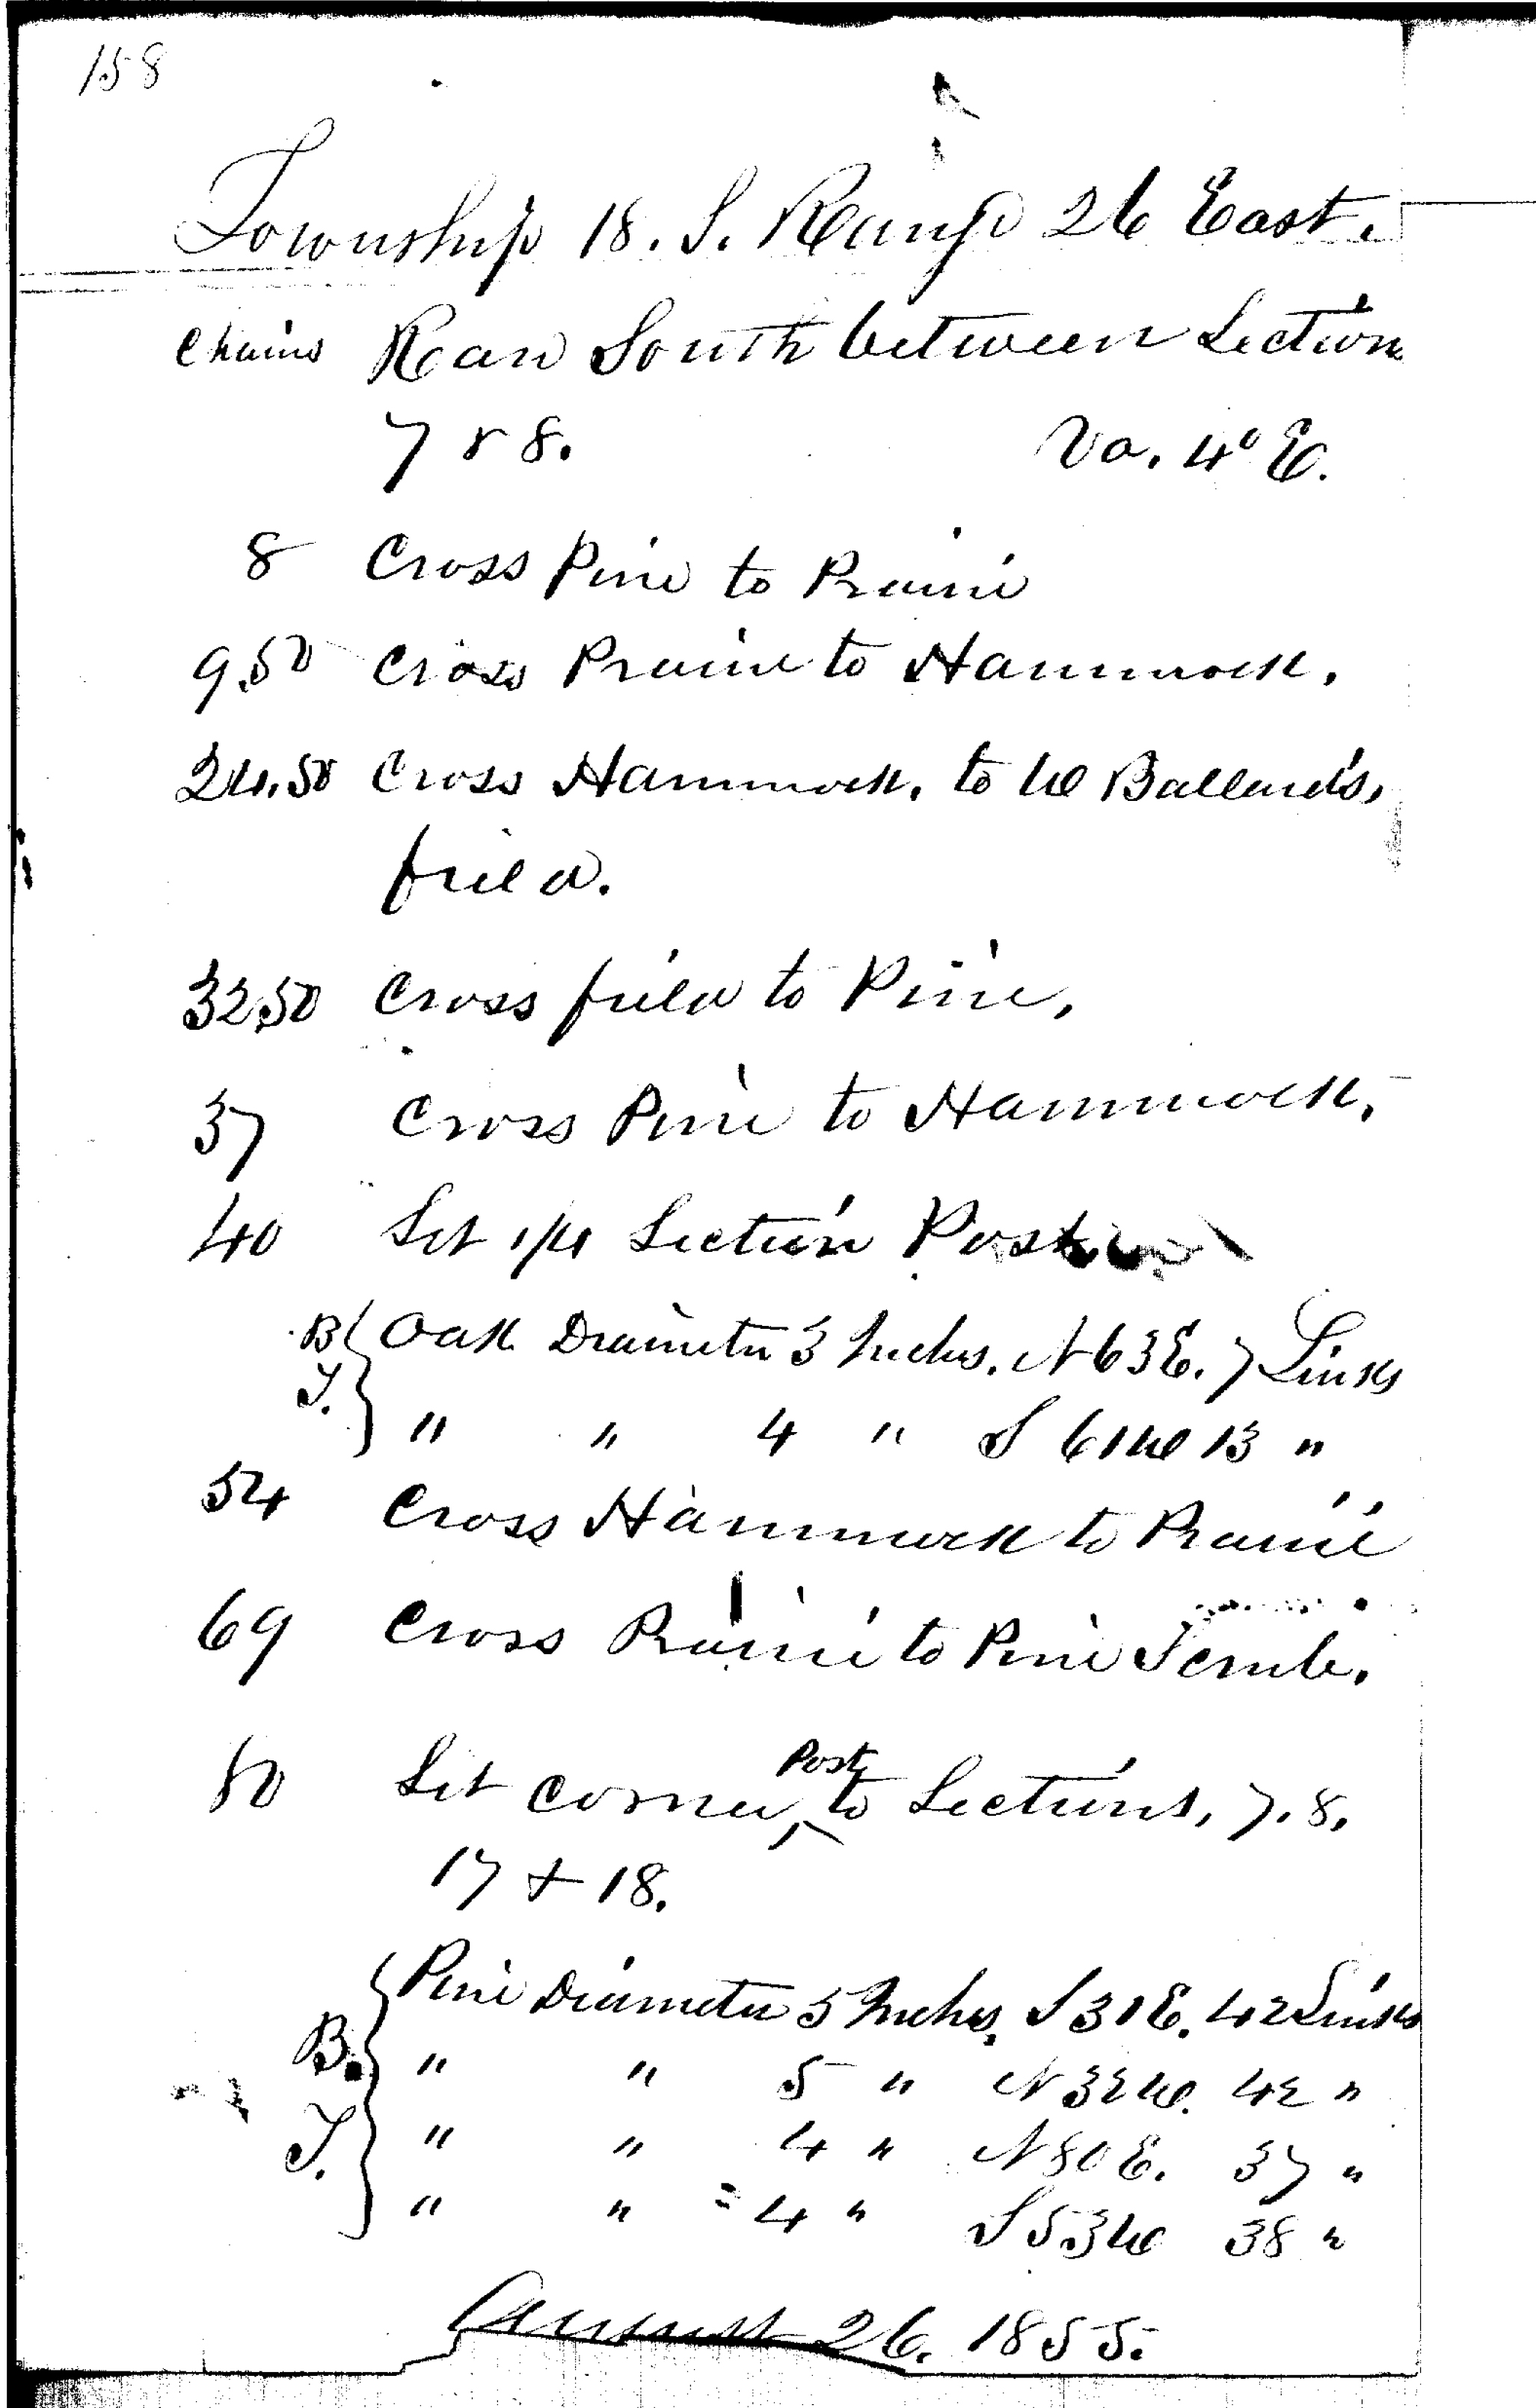 158
Township 18. S. Range 26 East.
Chains Ran South between Section
7 & 8. Va. 4° E.
8 Cross Pine to Prairie
9.50 Cross Prairie to Hammock.
24.50 Cross Hammock. to W Ballards,
field.
32.50 Cross field to Pine,
37 Cross Pine to Hammock.
40 Set 1/4 Section Post
B Oak Diameter 3 Inches. N 63 E. 7 Links
T. " " 4 " S 61 W 13 "
54 Cross Hammock to Prairie
69 Cross Prairie to Pine Scrub.
80 Set corner, Post to Sections, 7. 8.
17 + 18.
Pine Diameter 5 Inches, S 31 E. 42 Links
B. " " 5 " N 32 W. 42 "
T. " " 4 " N 80 E. 37 "
" " = 4 " S 53 W 38 "
August 26. 1855.